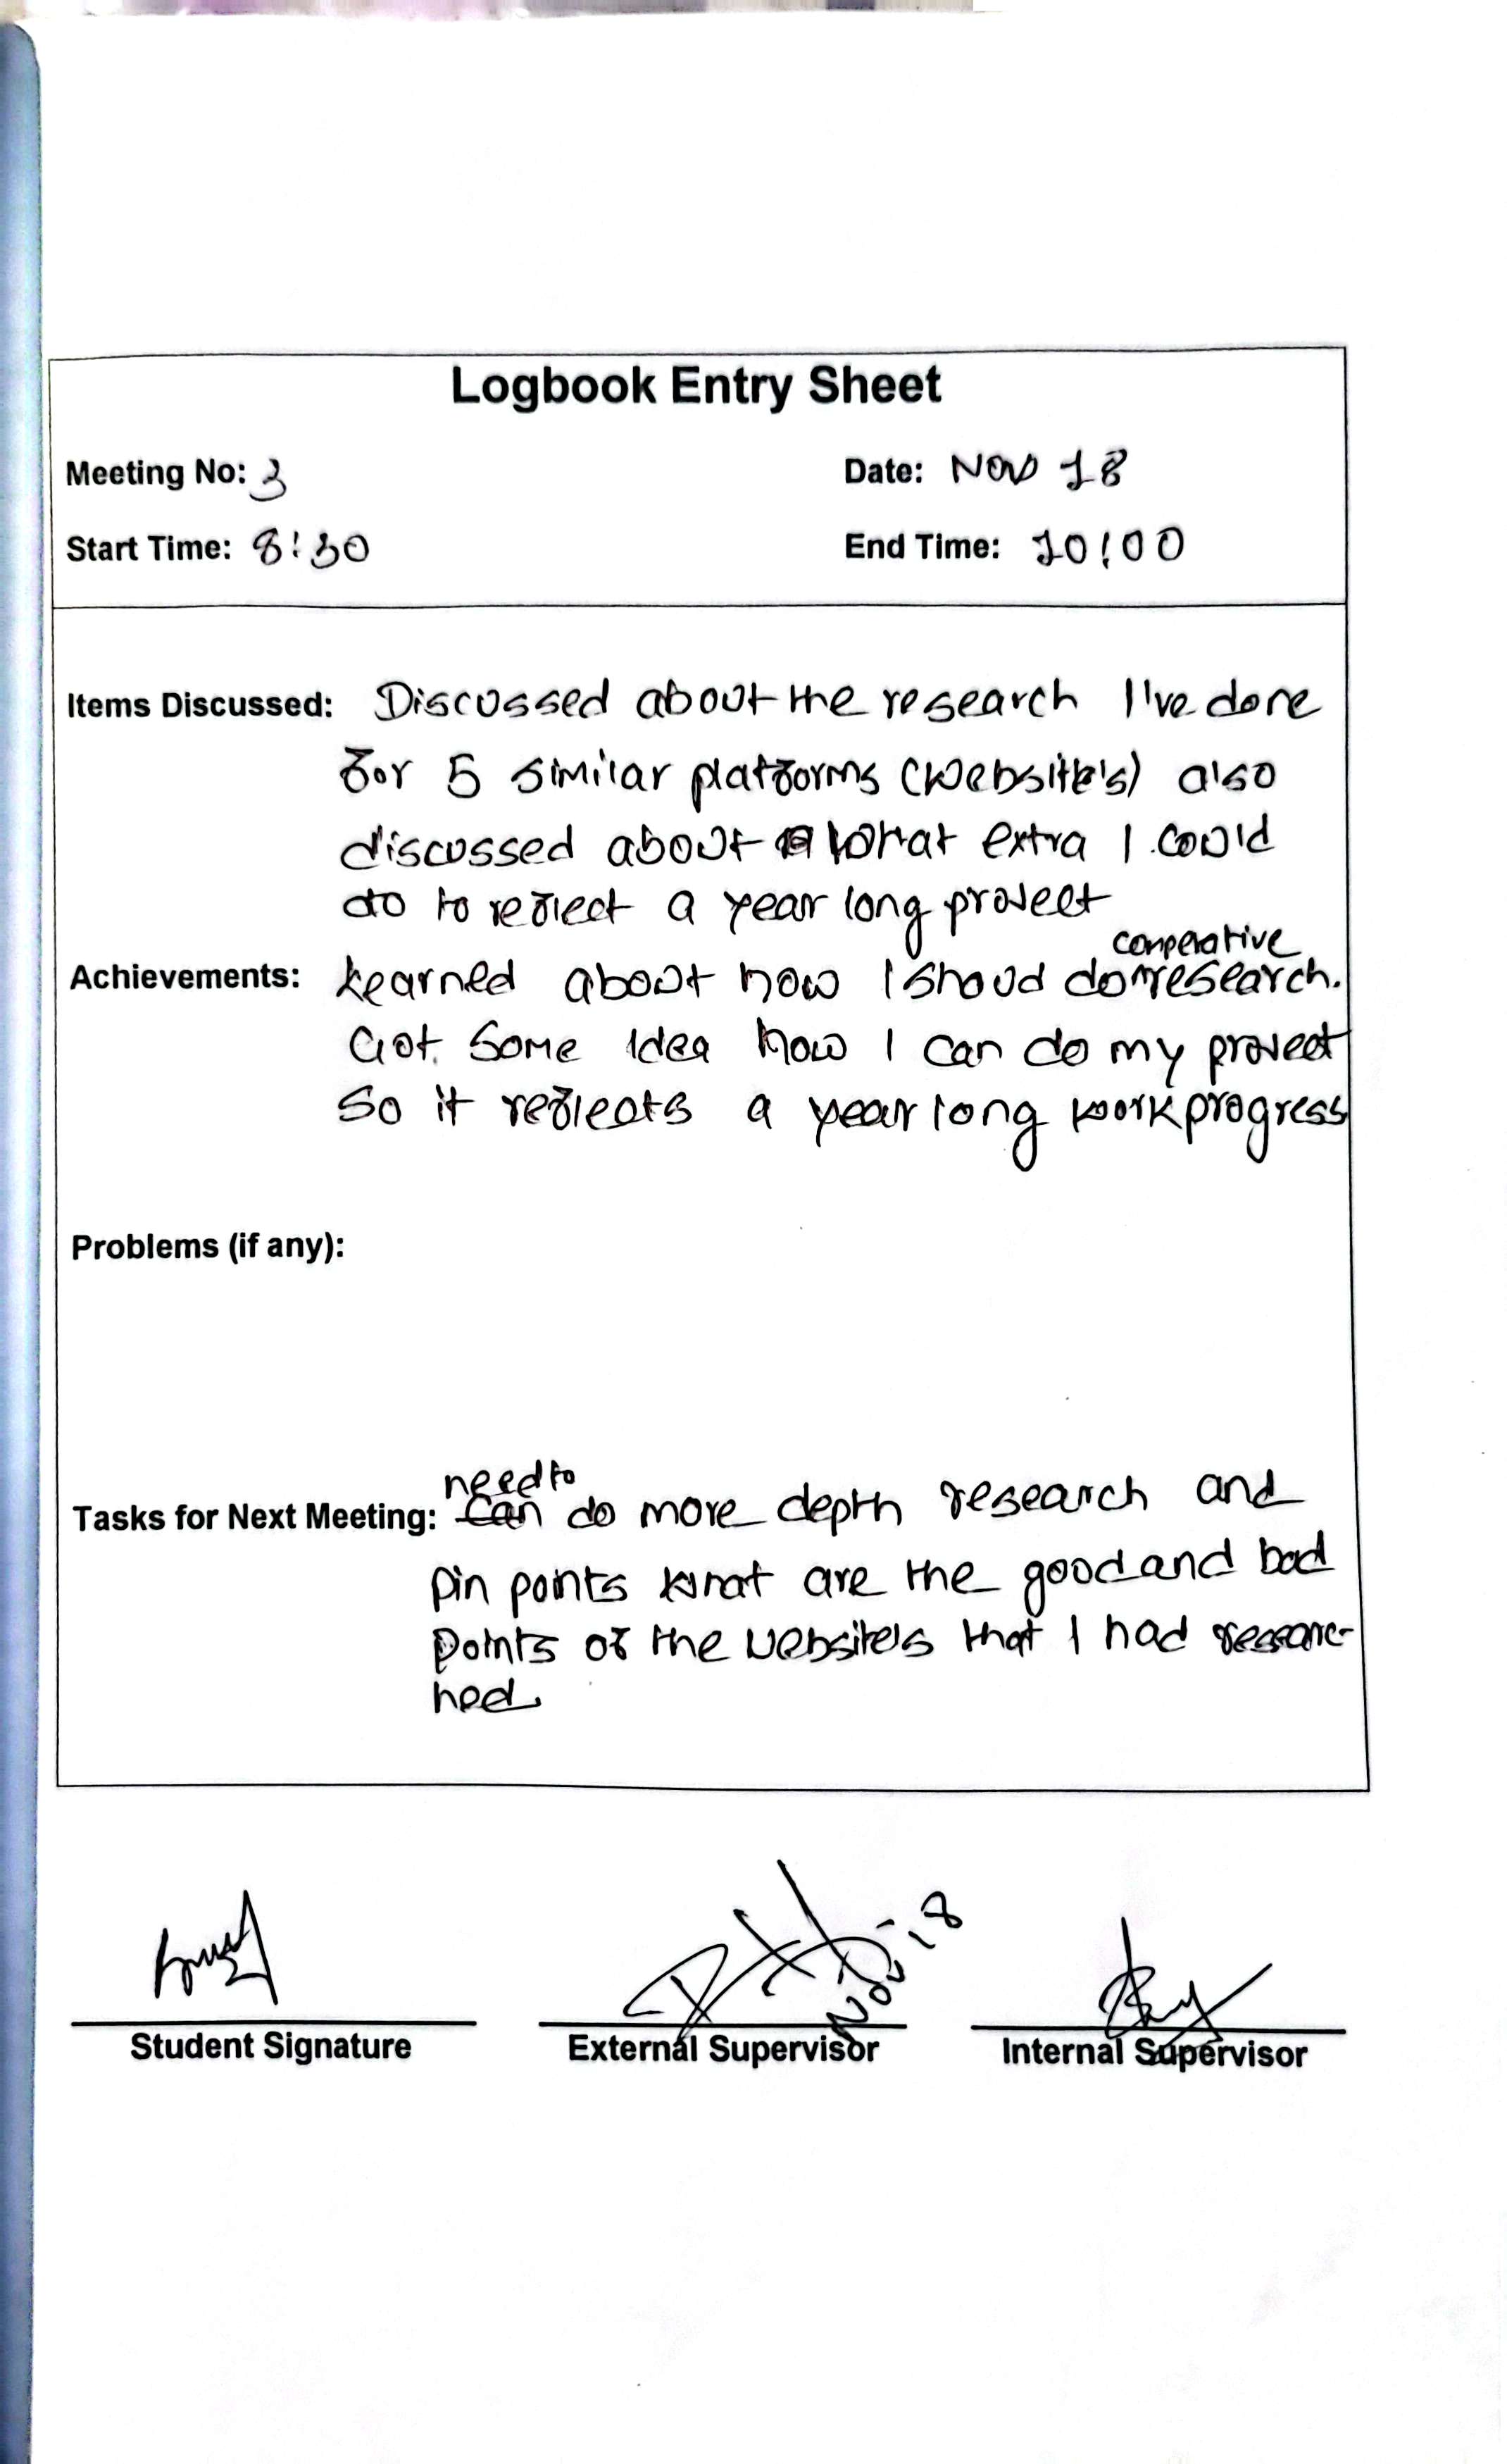 Logbook Entry Sheet
Meeting No: 3 Date: Nov 18
Start Time: 8:30 End Time: 10:00
Items Discussed: Discussed about the research I've done
for 5 similar platforms (website's) also
discussed about what extra I could
do to reflect a year long project
comperative
Achievements: Learned about how I shoud do research.
Got some idea how I can do my project
So it reflects a year long work progress
Problems (if any):
need to
Tasks for Next Meeting: can do more depth research and
pin points what are the good and bad
points of the website's that I had researc-
hed.
Nov 18
Student Signature External Supervisor Internal Supervisor